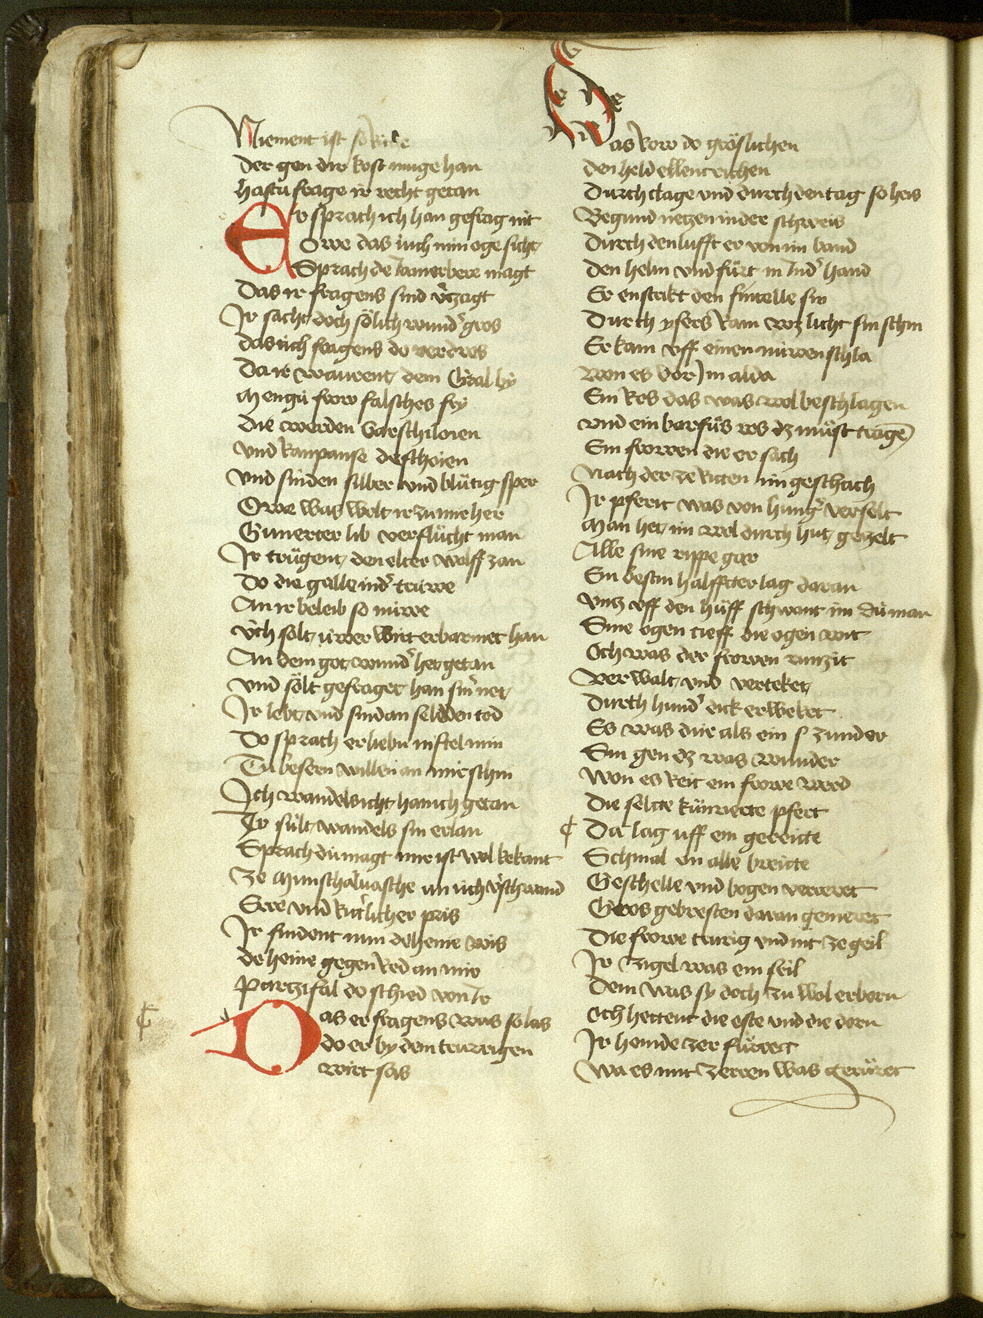 Niement ist so riche
Der gen dir kost muge han
hastu frage ir recht getan
Er sprach ich han gefrag nit
Owe das uͥch min oge sicht
Sprach de Jamerbere magt
Das ir fragens sind v̓zagt
Ir sacht doch soͤlich wund̓ gros
das uͥch fragens do verdros
Da ir warent dem Gral by
Mengu frow falsches fry
Die werden Garschiloien
vnd Ranpanse deschoien
vnd sinden silber vnd bluͤtig sper
Owe was wolt ir zu mir her
Gunerter lib verfluͤcht man
Ir truͤgent den eiter wolff zan
Do die galle ind̓ truwe
An ir beleib so nuwe
vͥch solt uͥwer wirt erbarmet han
An dem got wund̓ het getan
vnd soͤlt gefraget han sin̓ net
Ir lebt vnd sind an selden tod
Do sprach er liebu niftel min
Tuͦ besern willen an mir schin
Ich wandels icht han ich getan
Ir suͤlt wandels sin erlan
Sprach duͥ magt mir ist wol bekant
Ze Munschaluasche an uͥch v̓schwand
Ere vnd ritterlicher pris
Ir findent nun deheine wis
deheine gegen red an mir
Partzifal do schied von Ir
Das er fragens was so las
do er by dem trurrigen
wirt sas
Das row do groͤslichen
den held ellent richen
Durch clage vnd durch den tag so heis
Begund netzen in der schweis
Durch den lufft er von im band
den helm vnd fuͤrt in Ind̓ hand
Er enstrikt den fintelle sin
Durch ysers ram wz licht sin schin
Er kam vff einen nuwen schla
Won es vor Im alda
Ein Ros das was wol beschlagen
vnd ein barfuͦs ros dz muͤst tragē
Ein frowen die er sach
Nach der ze ritten im geschach
Ir pferit was von hung̓ verselt
Man het im wol durch hut gezelt
Alle sine rippe gar
Ein bestin halffter lag daran
vntz vff den huͦff schwank im duͥ man
Sine ogen tieff die ogen wit
Och was der frowen runzit
verwalt vnd verteket
Durch hung̓ dick erweket
Es was duͥr als ein zunder
Sin gen dz was wunder
Won es reit ein frowe werd
Die selten kunrierte pfert
Da lag uff ein gereite
Schmal on alle breitte
Geschelle vnd bogen verreret
Gros gebresten daran gemeret
Die frowe trurig vnd nit ze geil
Ir zigel was ein seil
Dem was sy doch zu wol erborn
Och hettent die este vnd die dorn
Ir hemde zer fuͤrret
Wa es mit zerren was geruͤret